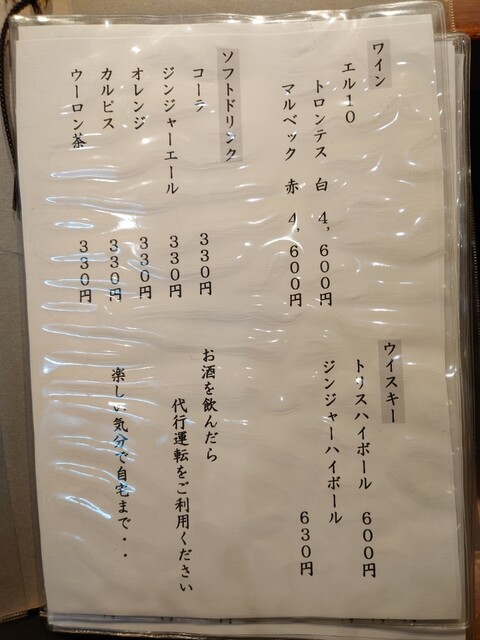 ワイン
エル１０
トロンテス　白　４，６００円
マルベック　赤　４，６００円
ソフトドリンク
コーラ　３３０円
ジンジャーエール　３３０円
オレンジ　３３０円
カルピス　３３０円
ウーロン茶　３３０円
ウイスキー
トリスハイボール　６００円
ジンジャーハイボール
６３０円
お酒を飲んだら
代行運転をご利用ください
楽しい気分で自宅まで・・